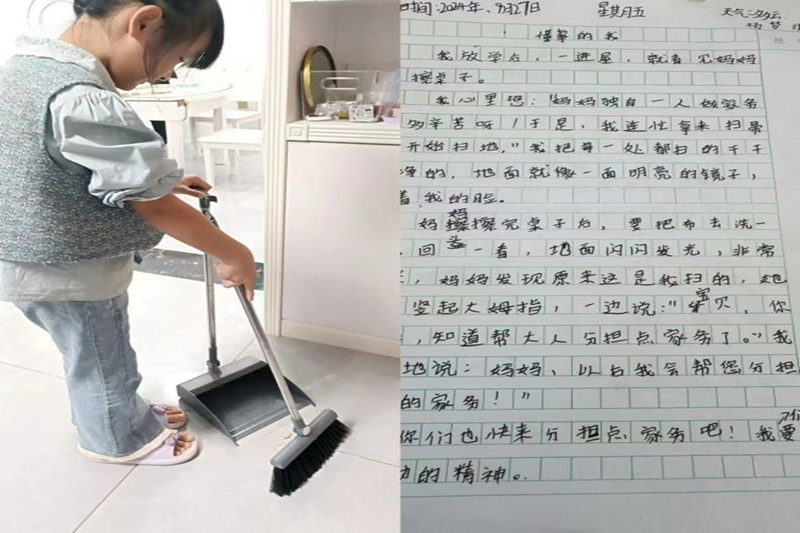 时间：2024年、9月27日 星期五 天气：多云
懂事的我
我放学后，一进屋，就看见妈妈
擦桌子。
我心里想："妈妈独自一人做家务
多辛苦呀！于是，我连忙拿来扫帚
开始扫地，"我把每一处都扫的干干
净的，地面就像一面明亮的镜子，
着我的脸。
妈妈擦完桌子后，要把布去洗一
回头一看，地面闪闪发光，非常
，妈妈发现原来这是我扫的，她
竖起大姆指，一边说："宝贝，你
，知道帮大人分担点家务了。"我
地说：妈妈，以后我会帮您分担
的家务！"
你们也快来分担点家务吧！我们要
动的精神。